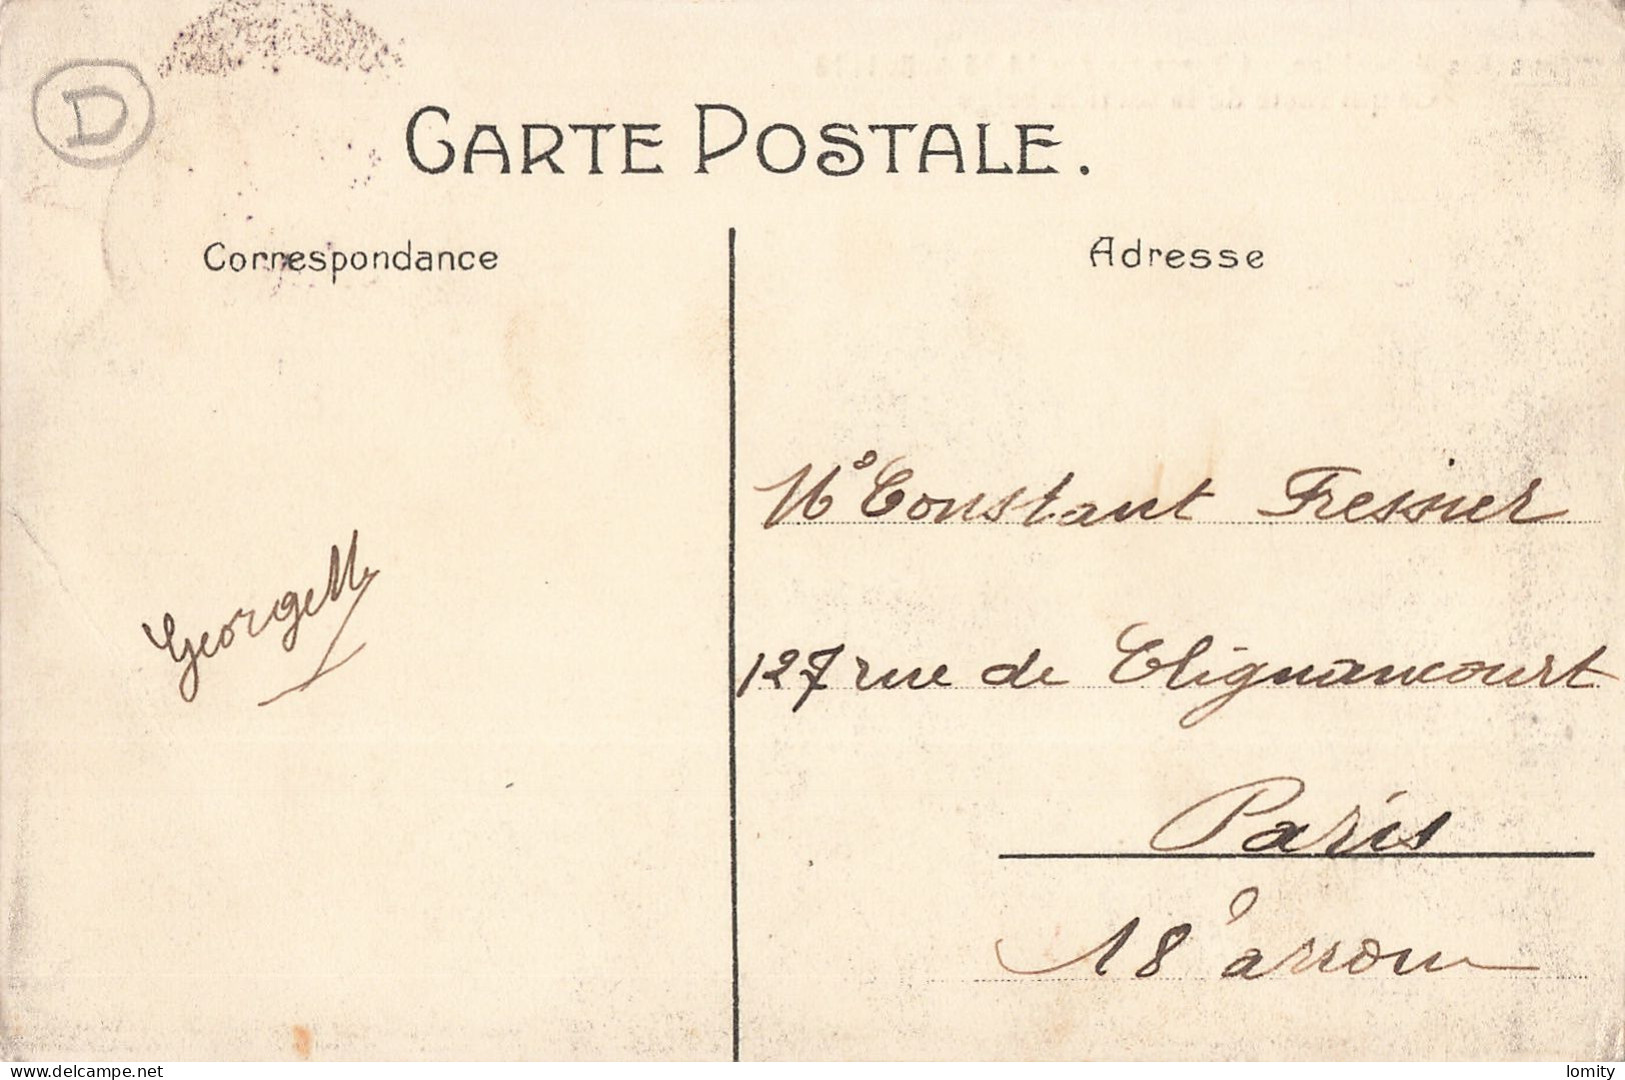 D
CARTE POSTALE.
Correspondance
Adresse
Mr Constant Fresnel
127 rue de Clignancourt
Paris
18e arron
GeorgeM
delcampe.net
lomity